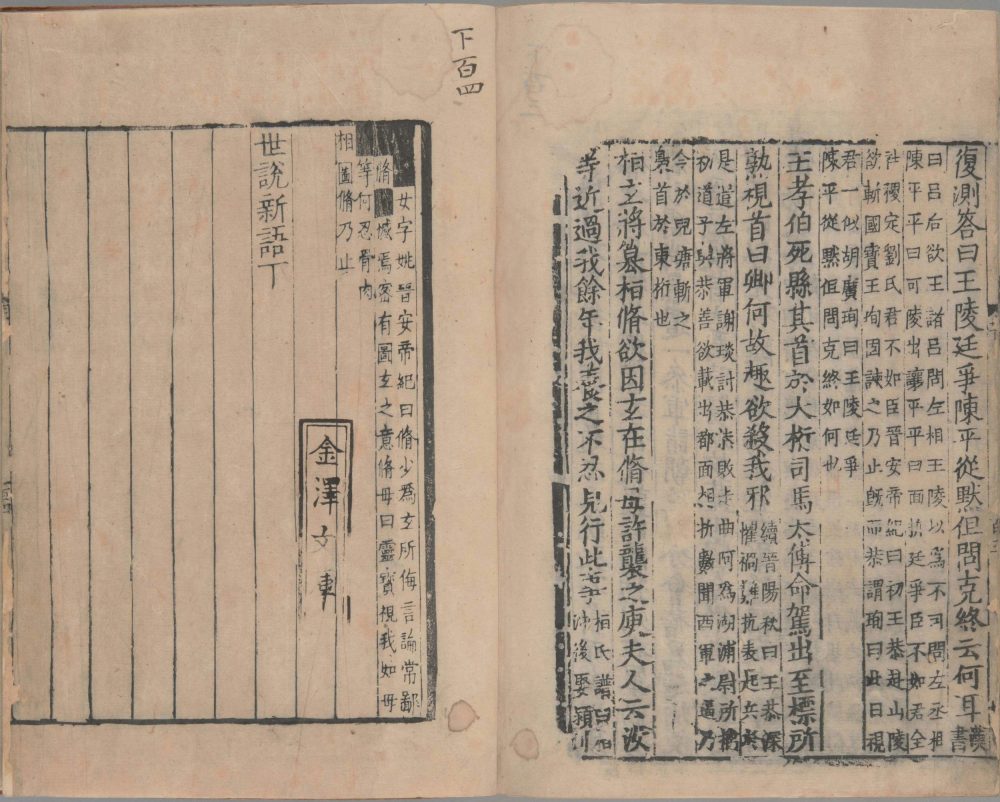 復測答曰王陵廷爭陳平從默但問克終云何耳漢書
曰呂后欲王諸呂問左相王陵以為不可問左丞相
陳平平曰可陵出讓平平曰面折廷爭臣不如君全
社稷定劉氏君不如臣晉安帝紀曰初王恭赴山陵
欲斬國寶王珣固諫之乃止既而恭謂珣曰此日視
君一似胡廣珣曰王陵廷爭
陳平從默但問克終如何也
王孝伯死縣其首於大桁司馬太傅命駕出至標所
孰視首曰卿何故趣欲殺我邪續晉陽秋曰王恭深
懼禍難抗表起兵於
是道左將軍謝琰討恭恭敗走曲阿為湖浦尉所擒
初道子與恭善欲載出都面相折數聞西軍之逼乃
令於兒塘斬之
梟首於東桁也
桓玄將篡桓脩欲因玄在脩母許襲之庾夫人云汝
等近過我餘年我養之不忍見行此事桓氏譜曰桓
沖後娶潁川
下百四
女字姚晉安帝紀曰脩少為玄所侮言論常鄙
脩憾焉密有圖玄之意脩母曰靈寶視我如母
等何忍骨肉
相圖脩乃止
世說新語下
金澤文庫